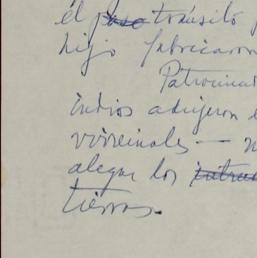 él paso tránsito
hijo fabricaron
Patrocinad
indios adujeron
virreinales —
alegar los intrus
tierras.